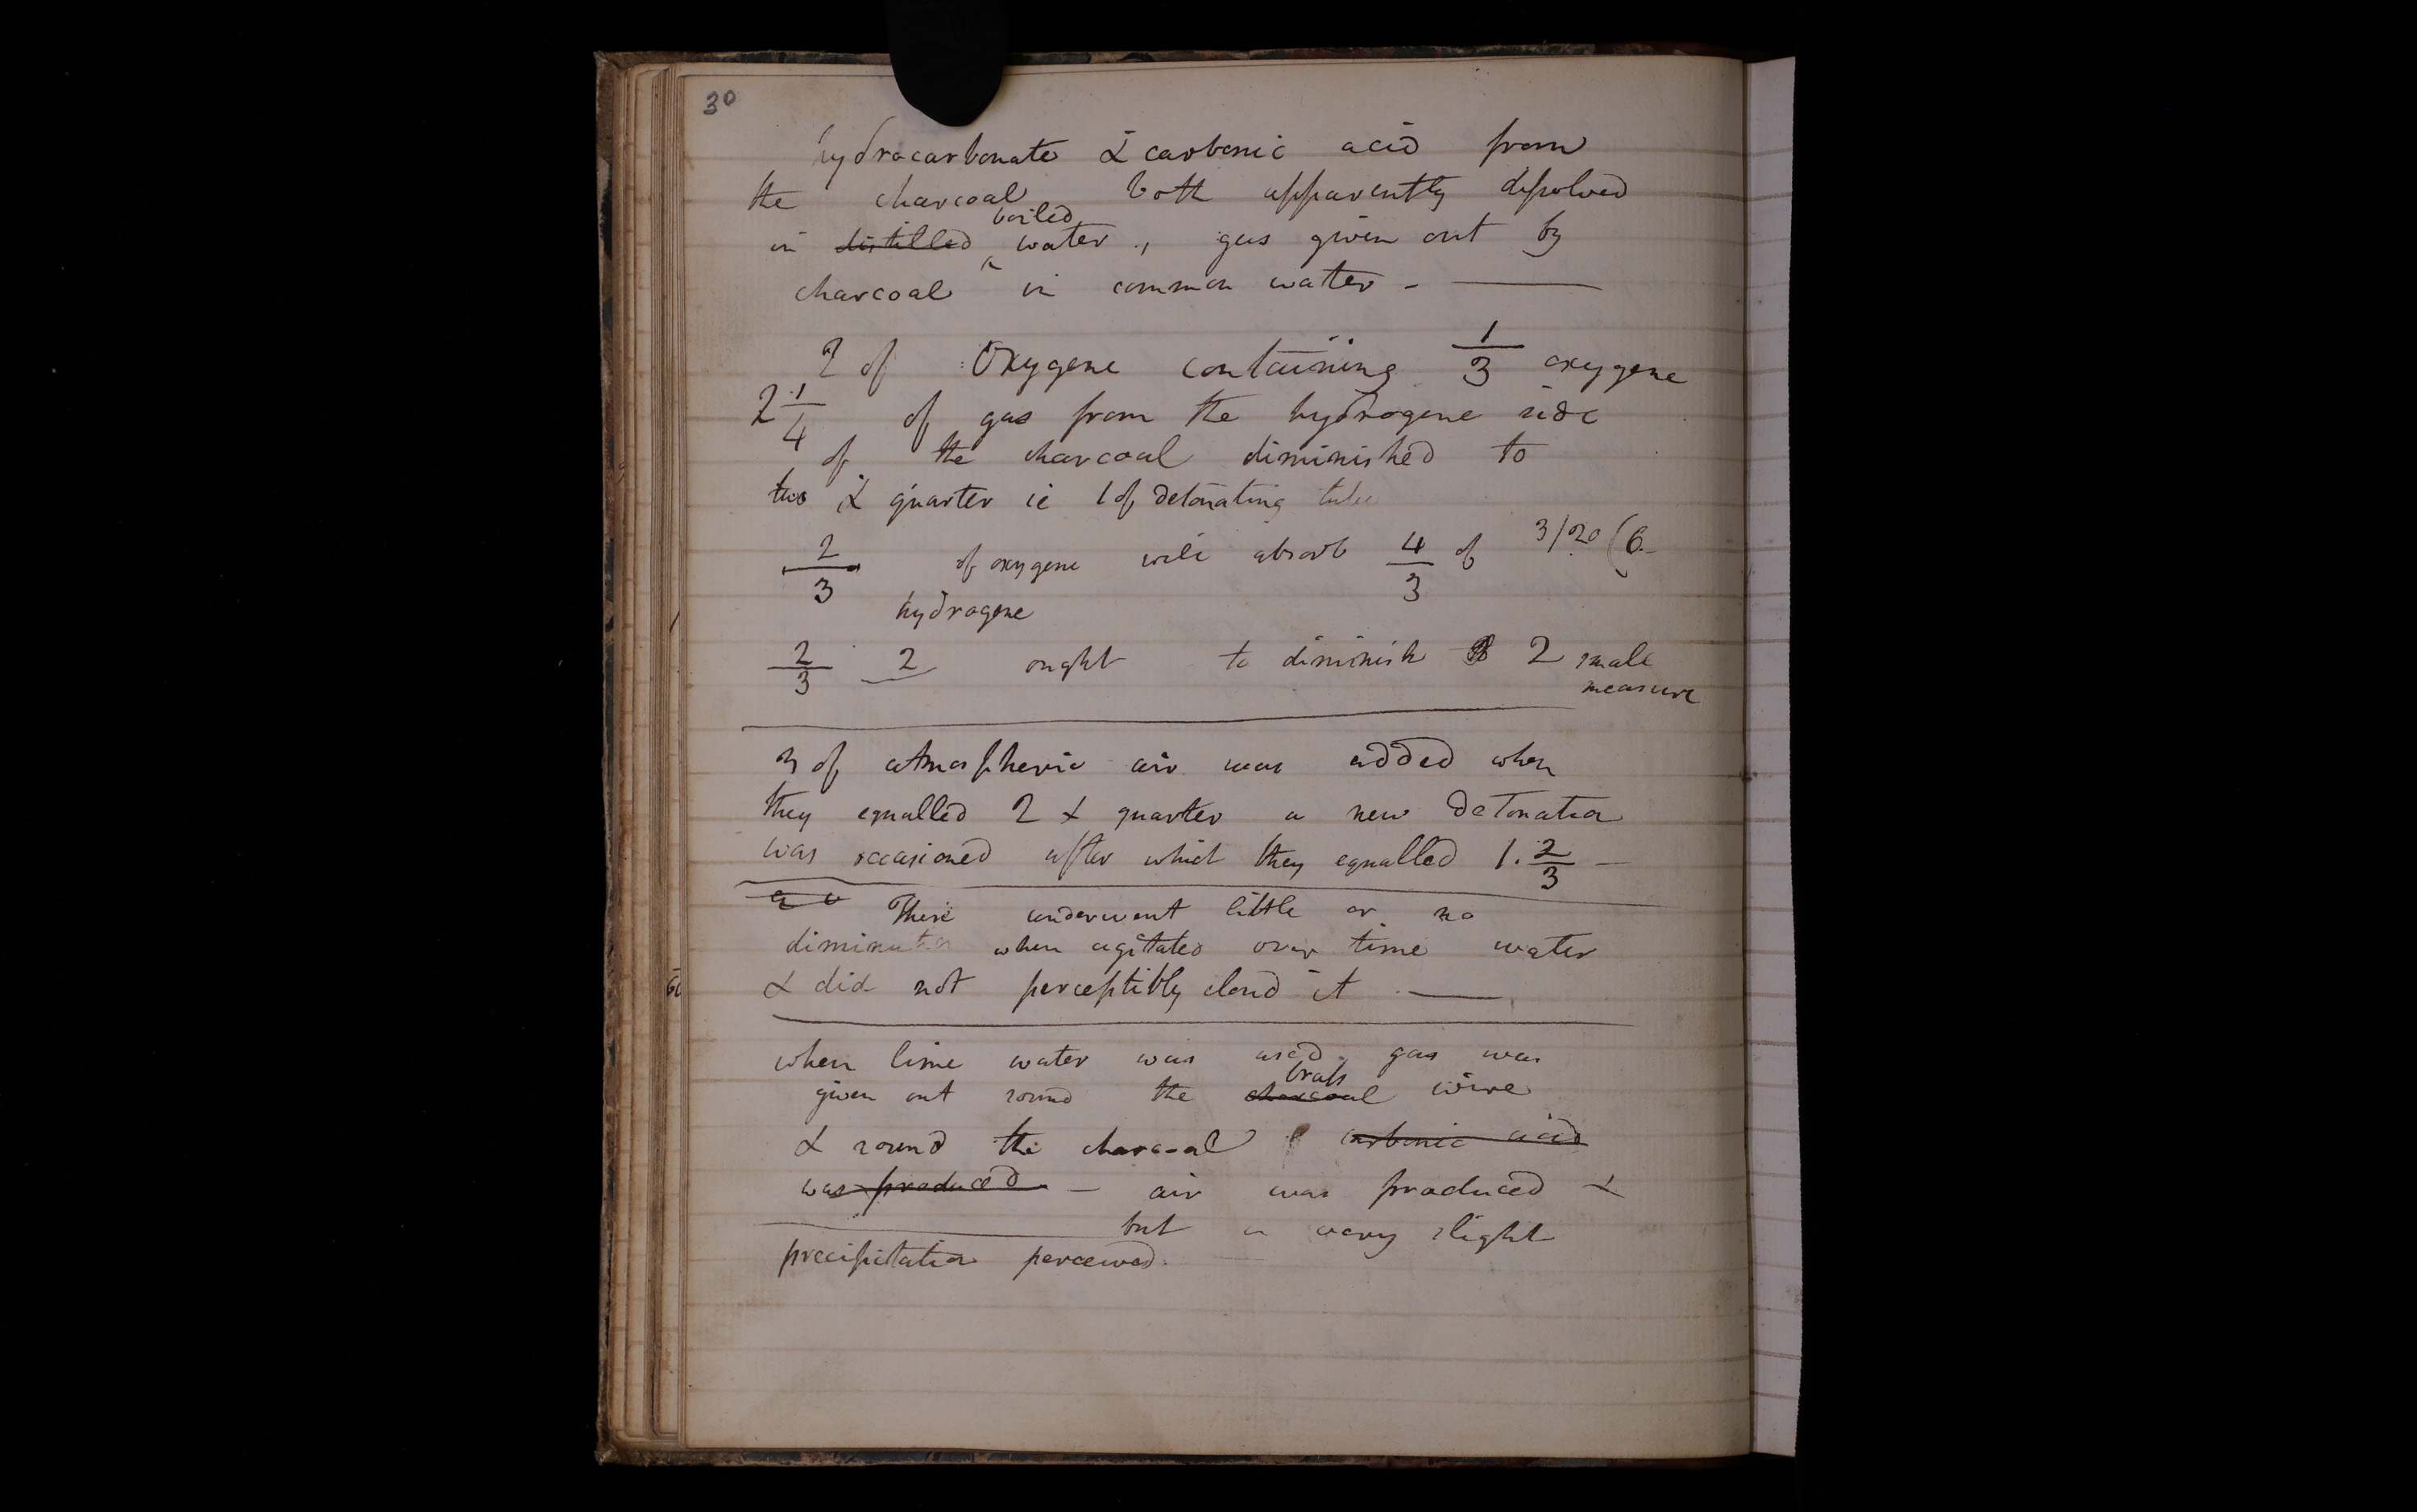 30
hydrocarbonate & carbonic acid from
the charcoal both apparently dissolved
boiled
in distilled water, gas given out by
charcoal in common water - ———
2 of Oxygene containing 1/3 oxygene
2 1/4 of gas from the hydrogene side
of the charcoal diminished to
two & quarter ie 1 of detonating tube
2/3 of oxygene will absorb 4/3 of 3/20(6-
hydrogene
2/3 2 ought to diminish 2 small
measure
3 of atmospheric air was added when
they equalled 2 & quarter a new detonation
was occasioned after which they equalled 1.2/3 —
These underwent little or no
diminution when agitated over lime water
& did not perceptibly cloud it ——
when lime water was used gas was
brass
given out round the charcoal wire
& round the charcoal carbonic acid
was produced — air was produced &
but a very slight
precipitation perceived.